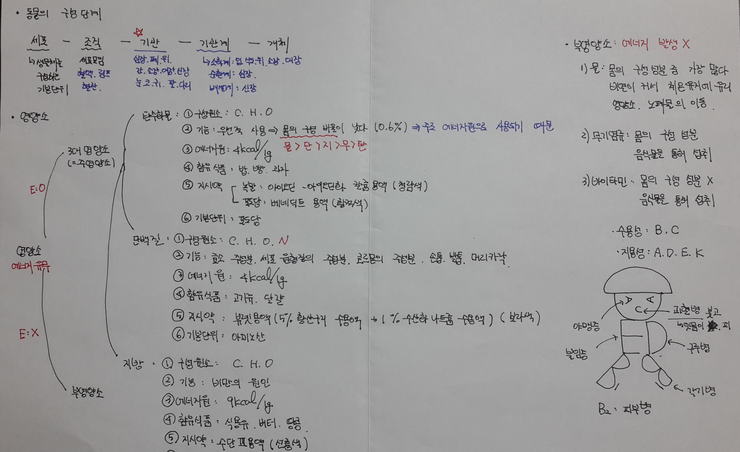 • 동물의 구성 단계
세포 — 조직 — 기관 — 기관계 — 개체
↳ 생물체를 구성하는 기본단위
세포모임
혈액, 림프
심장, 폐, 위,
간, 소장, 대장, 신장
눈, 코, 귀, 팔, 다리
↳ 소화계: 입, 위, 소장, 대장
순환계: 심장,
배설계: 신장
• 영양소
영양소
에너지 유무
E:O
3대 영양소
(=주영양소)
E:X
부영양소
탄수화물: ① 구성원소: C. H. O
② 기능: 우선적 사용 ⇒ 몸의 구성 비율이 낮다 (0.6%) ⇒ 주로 에너지원으로 사용되기 때문
물>단>지>무>탄
③ 에너지원: 4kcal/g
④ 함유식품: 밥, 빵, 과자
⑤ 지시약
녹말: 아이오딘-아이오딘화 칼륨 용액 (청람색)
포도당: 베네딕트 용액 (황적색)
⑥ 기본단위: 포도당
단백질: ① 구성원소: C. H. O. N
② 기능: 효소 구성성분, 세포 원형질의 구성분, 호르몬의 구성분, 손톱, 발톱, 머리카락
③ 에너지원: 4kcal/g
④ 함유식품: 고기류, 달걀
⑤ 지시약: 뷰렛용액 (5% 황산구리 수용액 + 1% 수산화 나트륨 수용액) (보라색)
⑥ 기본단위: 아미노산
지방: ① 구성원소: C. H. O
② 기능: 비만의 원인
③ 에너지원: 9kcal/g
④ 함유식품: 식용유, 버터, 땅콩
⑤ 지시약: 수단 Ⅲ용액 (선홍색)
• 부영양소: 에너지 발생 X
1) 물: 몸의 구성 성분 중 가장 많다
비열이 커서 체온유지에 유리
영양소, 노폐물의 이동.
2) 무기염류: 몸의 구성 성분
음식물을 통해 섭취
3) 바이타민: 몸의 구성 성분 X
음식물을 통해 섭취
• 수용성: B. C
• 지용성: A. D. E. K
A A
C
괴혈병
야맹증
불임증
E
D
구루병
B₁
각기병
B₂: 피부병